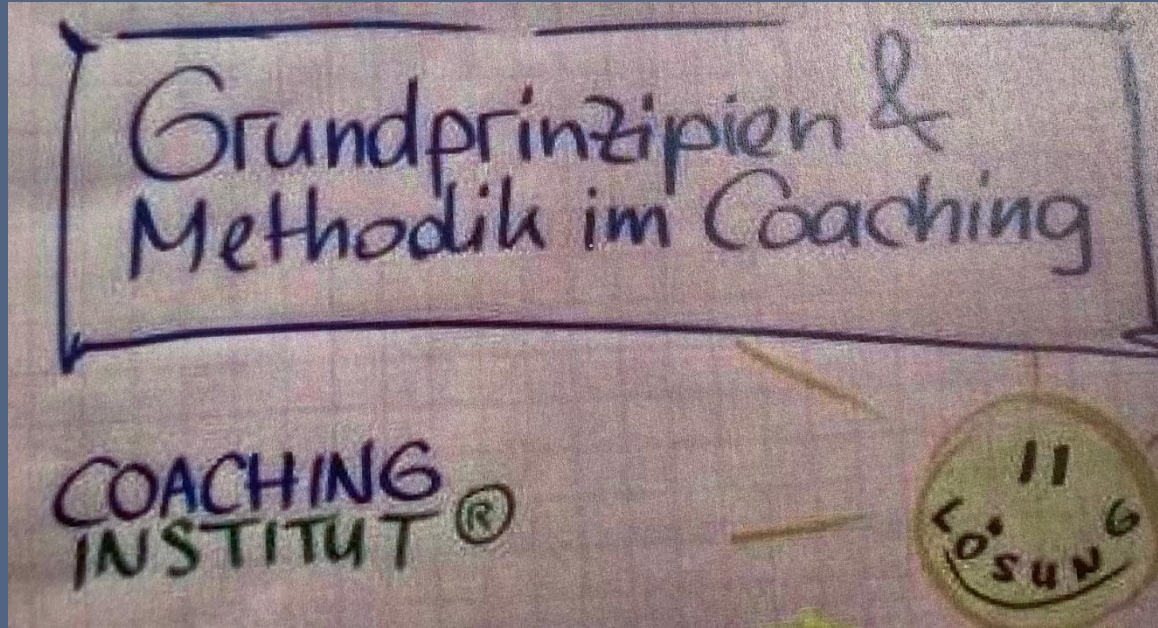 Grundprinzipien &
Methodik im Coaching
COACHING
INSTITUT ®
LÖSUNG